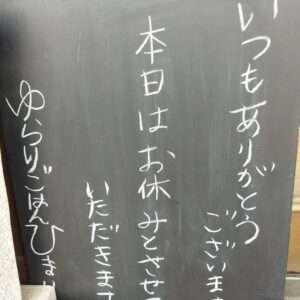 いつもありがとう
ございま
本日はお休みとさせ
いただきます
ゆらりごはんひま